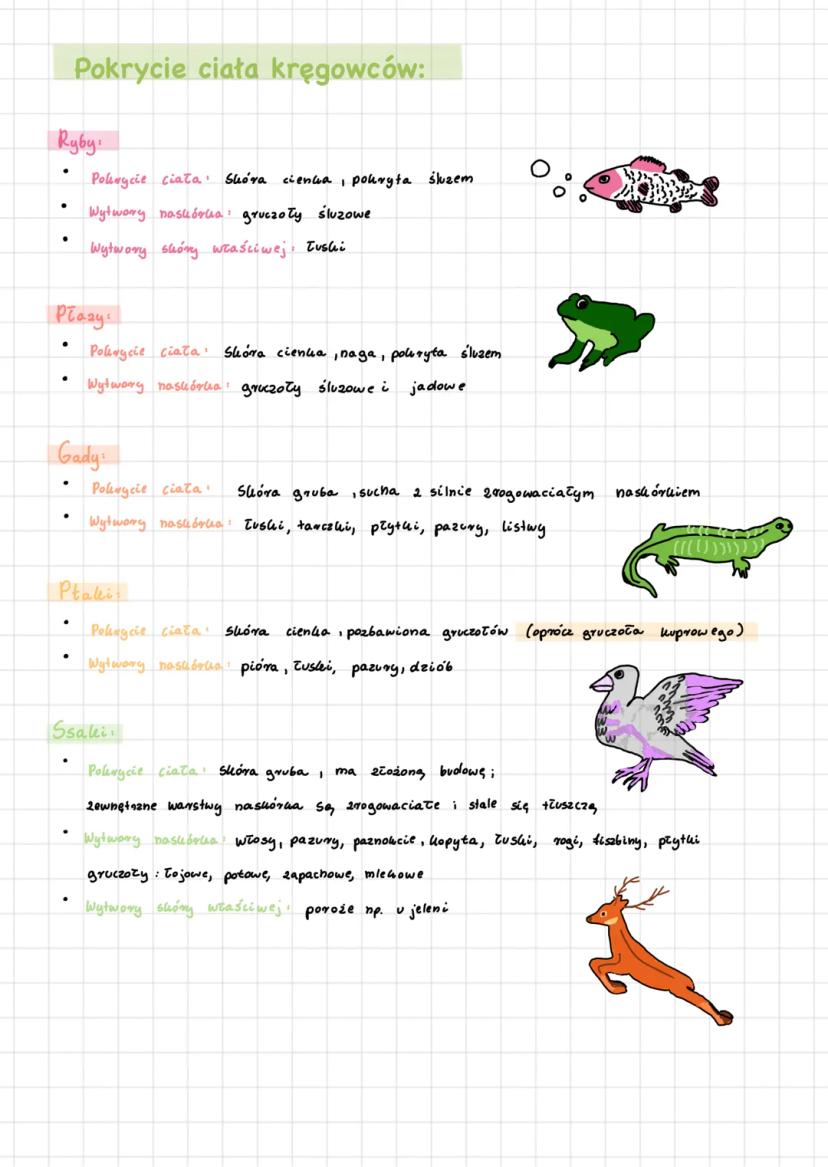 Pokrycie ciała kręgowców:
Ryby:
• Pokrycie ciała: skóra cienka, pokryta śluzem
• Wytwory naskórka: gruczoły śluzowe
• Wytwory skóry właściwej: łuski
Płazy:
• Pokrycie ciała: skóra cienka, naga, pokryta śluzem
• Wytwory naskórka: gruczoły śluzowe i jadowe
Gady:
• Pokrycie ciała: skóra gruba, sucha z silnie zrogowaciałym naskórkiem
• Wytwory naskórka: łuski, tarczki, płytki, pazury, listwy
Ptaki:
• Pokrycie ciała: skóra cienka, pozbawiona gruczołów (oprócz gruczoła kuprowego)
• Wytwory naskórka: pióra, łuski, pazury, dziób
Ssaki:
• Pokrycie ciała: skóra gruba, ma złożoną budowę;
zewnętrzne warstwy naskórka są zrogowaciałe i stale się tłuszczą
• Wytwory naskórka: włosy, pazury, paznokcie, kopyta, łuski, rogi, fiszbiny, płytki
gruczoły: łojowe, potowe, zapachowe, mlekowe
• Wytwory skóry właściwej: poroże np. u jeleni